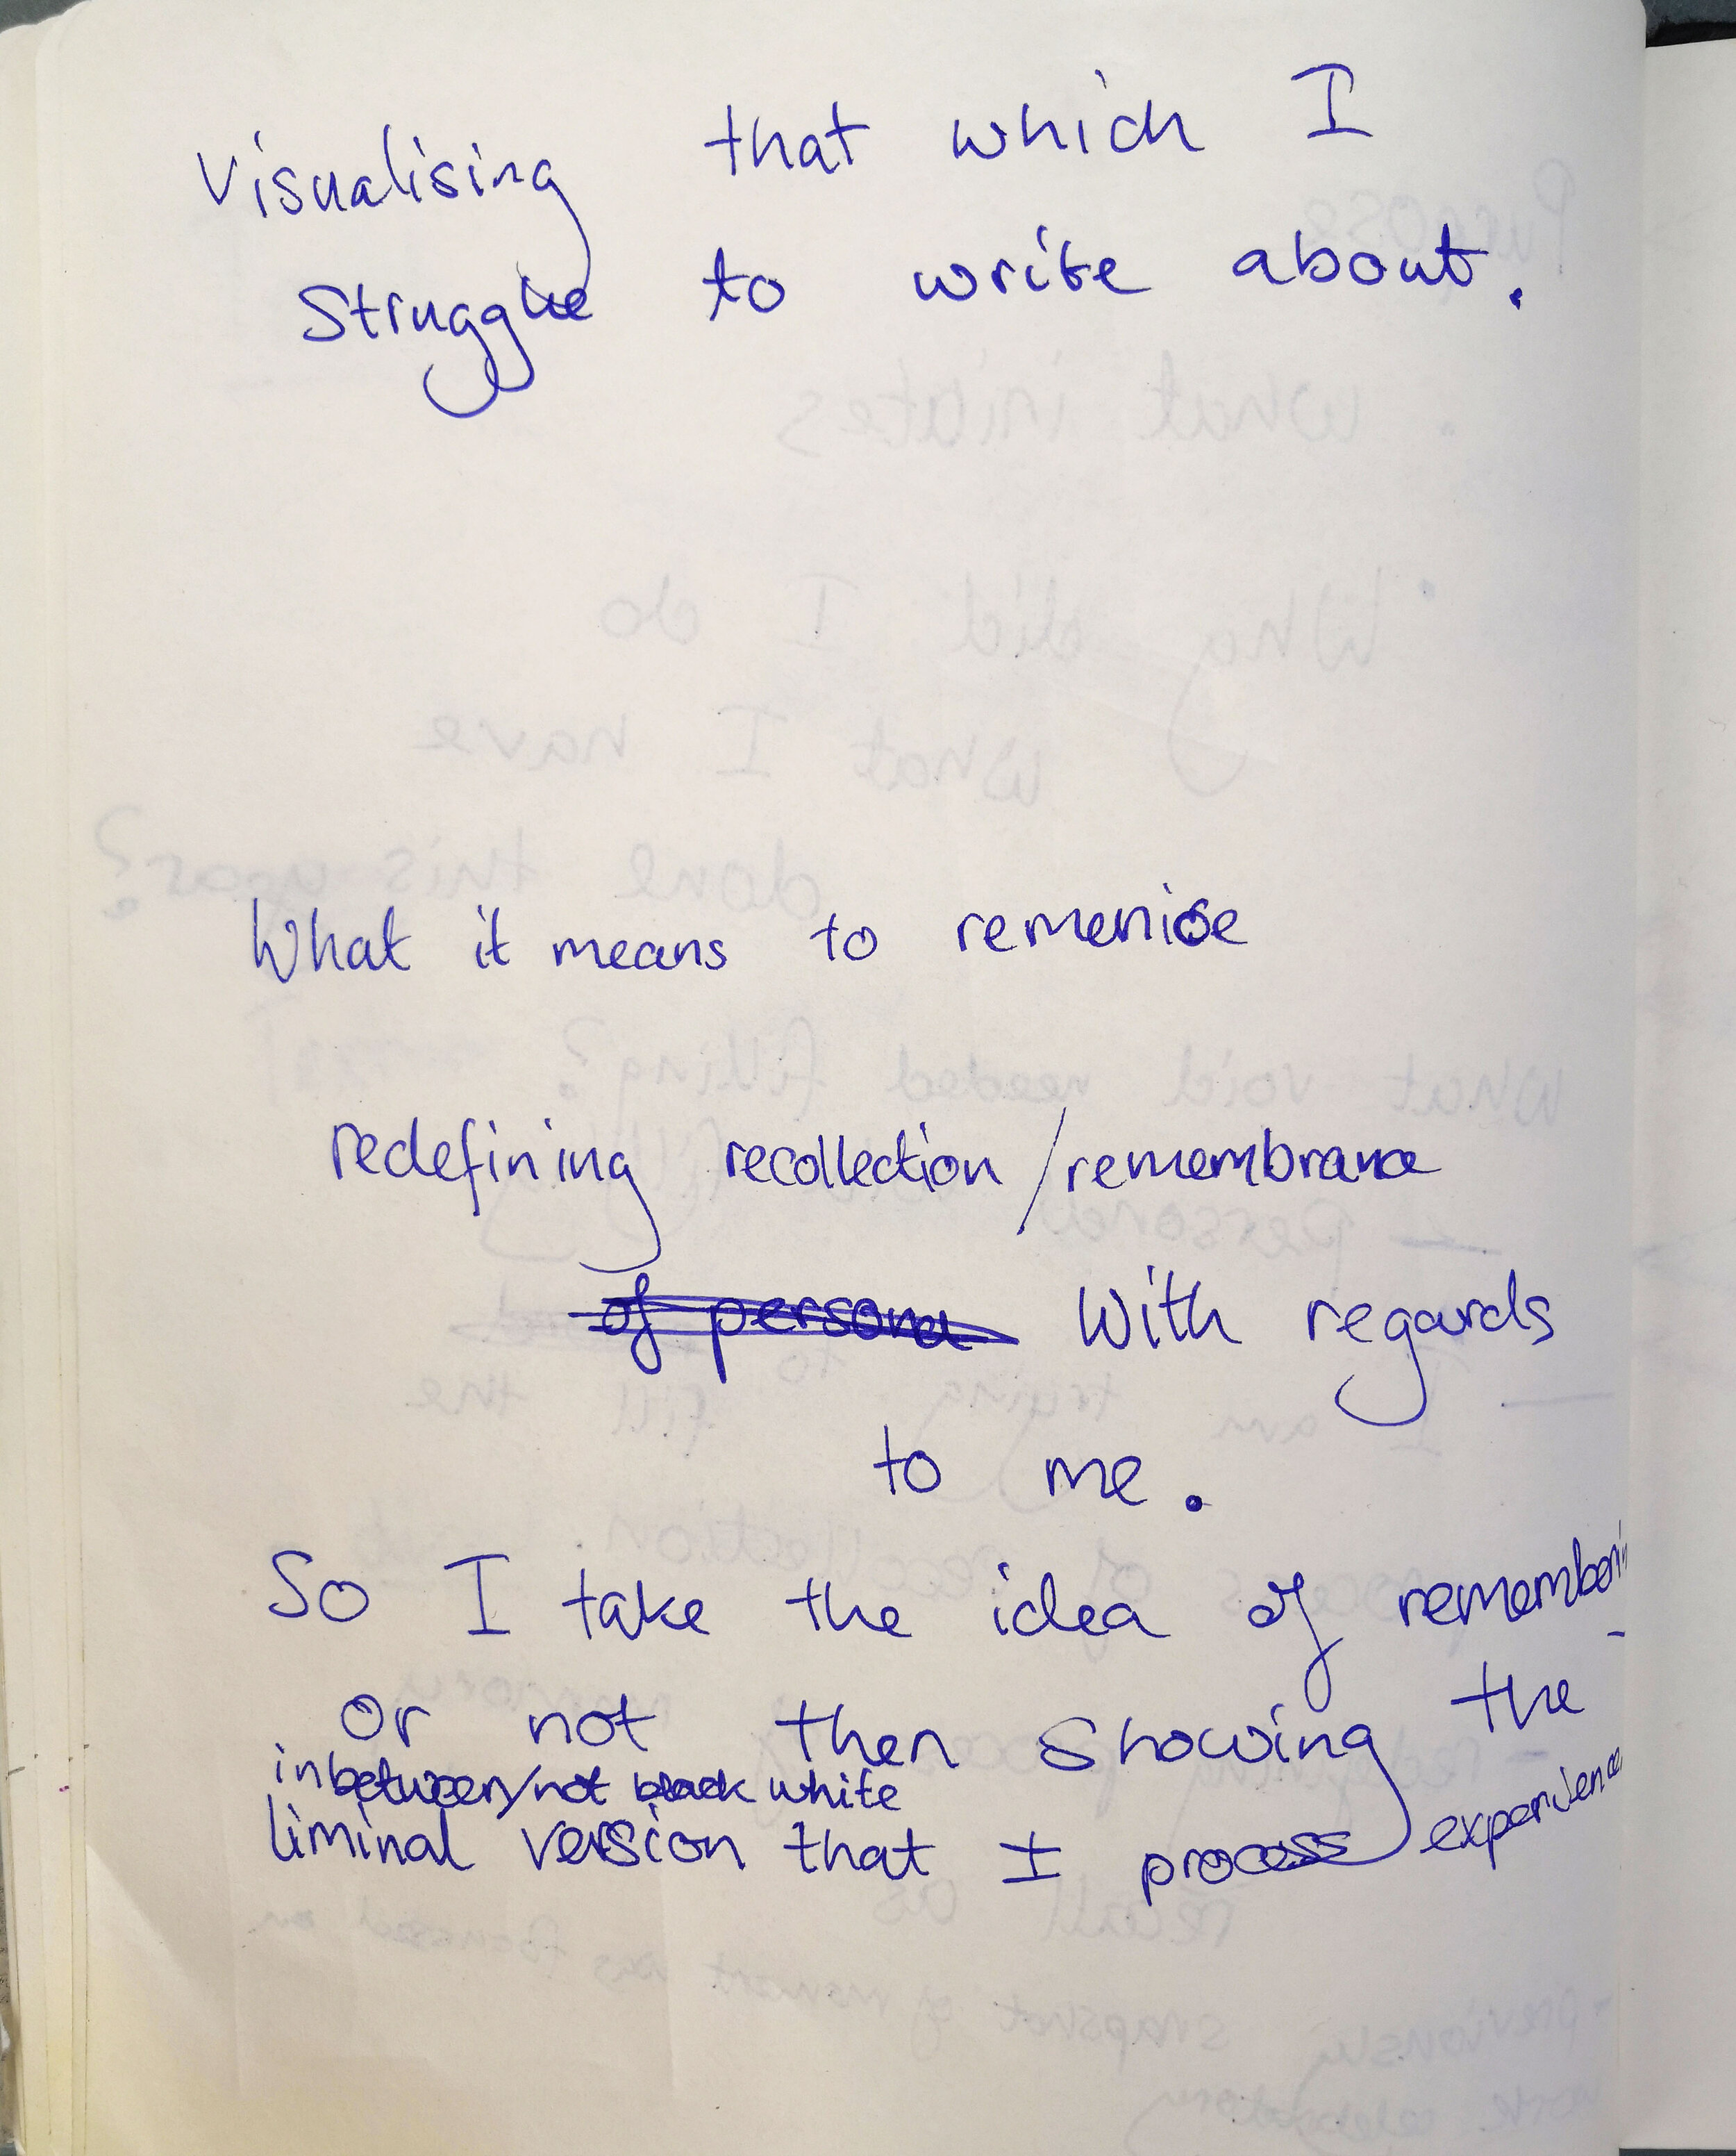 Visualising that which I
struggle to write about.
What it means to remenice
redefining recollection/remembrance
of persona With regards
to me.
So I take the idea of remembering
or not then showing the
inbetween/not black white
liminal version that I process experience